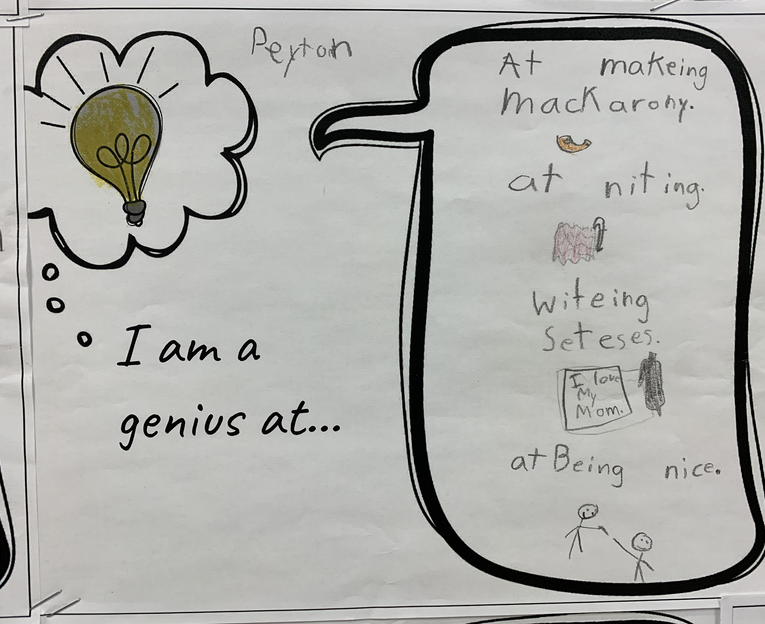 Peyton
I am a
genius at...
At makeing
mackarony.
at niting.
witeing
seteses.
I love
My
Mom.
at Being nice.